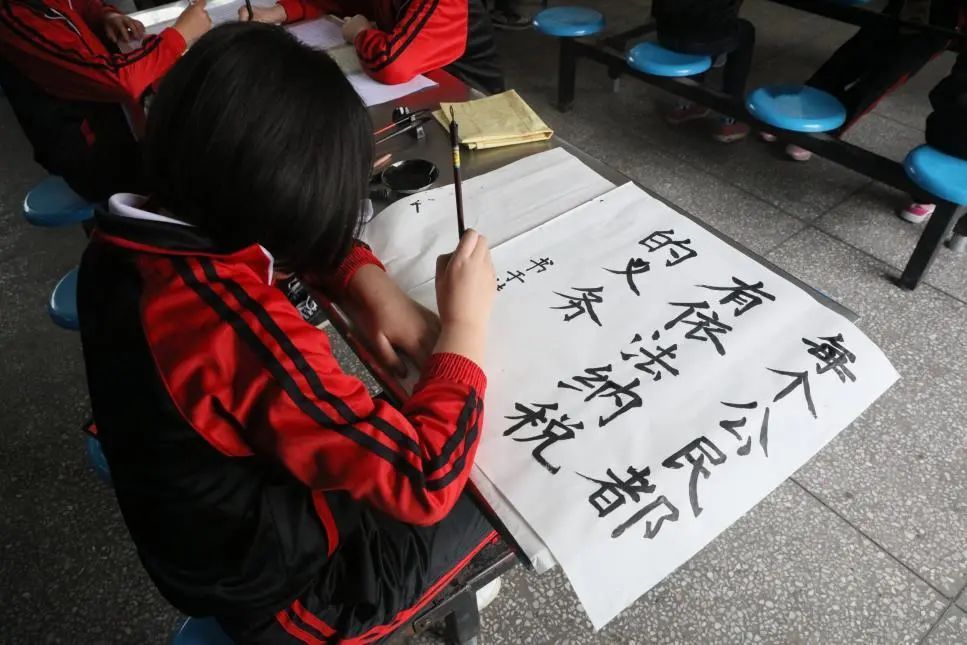 每个公民都
有依法纳税
的义务
书于